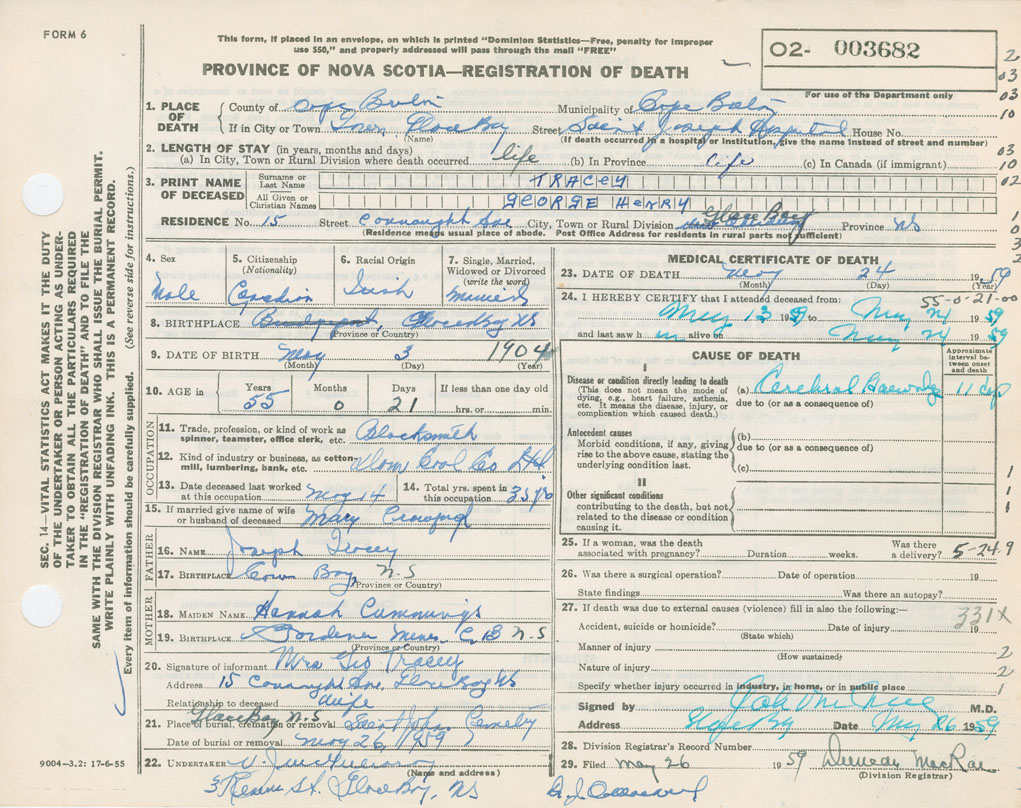 FORM 6
This form, if placed in an envelope, on which is printed "Dominion Statistics—Free, penalty for improper
use $50," and properly addressed will pass through the mail "FREE"
PROVINCE OF NOVA SCOTIA—REGISTRATION OF DEATH
O2- 003682
For use of the Department only
2
03
03
10
03
10
02
1
0
3
2
SEC. 14—VITAL STATISTICS ACT MAKES IT THE DUTY
OF THE UNDERTAKER OR PERSON ACTING AS UNDER-
TAKER TO OBTAIN ALL THE PARTICULARS REQUIRED
IN THE "REGISTRATION OF DEATH" AND TO FILE THE
SAME WITH THE DIVISION REGISTRAR WHO SHALL ISSUE THE BURIAL PERMIT.
WRITE PLAINLY WITH UNFADING INK. THIS IS A PERMANENT RECORD.
Every item of information should be carefully supplied. (See reverse side for instructions.)
1. PLACE OF DEATH
County of Cape Breton Municipality of Cape Breton
If in City or Town Town Glace Bay Street Saint Joseph Hospital House No.
(Name) (If death occurred in a hospital or institution, give the name instead of street and number)
2. LENGTH OF STAY (in years, months and days)
(a) In City, Town or Rural Division where death occurred life (b) In Province Life (c) In Canada (if immigrant)
3. PRINT NAME OF DECEASED
Surname or Last Name TRACEY
All Given or Christian Names GEORGE HENRY
RESIDENCE No. 15 Street Connaught Ave City, Town or Rural Division Glace Bay Province NS
(Residence means usual place of abode. Post Office Address for residents in rural parts not sufficient)
4. Sex
Male
5. Citizenship
(Nationality)
Canadian
6. Racial Origin
Irish
7. Single, Married,
Widowed or Divorced
(write the word)
Married
8. BIRTHPLACE Bridgeport, Glace Bay NS
(Province or Country)
9. DATE OF BIRTH May 3 1904
(Month) (Day) (Year)
10. AGE in
Years Months Days If less than one day old
55 0 21 hrs. or min.
OCCUPATION
11. Trade, profession, or kind of work as
spinner, teamster, office clerk, etc. Blacksmith
12. Kind of industry or business, as cotton-
mill, lumbering, bank, etc. Dom Coal Co Ltd
13. Date deceased last worked
at this occupation May 14
14. Total yrs. spent in
this occupation 35 yrs
15. If married give name of wife
or husband of deceased Mary Crawford
FATHER
16. NAME Joseph Tracey
17. BIRTHPLACE Cow Bay N-S
(Province or Country)
MOTHER
18. MAIDEN NAME Hannah Cummings
19. BIRTHPLACE Gardener Mines C B N-S
(Province or Country)
20. Signature of informant Mrs Geo Tracey
Address 15 Connaught Ave, Glace Bay NS
Relationship to deceased wife
21. Place of burial, cremation or removal Glace Bay N-S Saint Johns Cemetry
Date of burial or removal May 26, 1959
22. UNDERTAKER
(Name and address)
St. Glace Bay, NS
9004—3.2: 17-6-55
MEDICAL CERTIFICATE OF DEATH
23. DATE OF DEATH May 24 1959
(Month) (Day) (Year)
24. I HEREBY CERTIFY that I attended deceased from: 55-0-21-00
May 13 1959 to May 24 1959
and last saw h im alive on May 24 1959
CAUSE OF DEATH
Approximate
interval be-
tween onset
and death
I
Disease or condition directly leading to death
(This does not mean the mode of
dying, e.g., heart failure, asthenia,
etc. It means the disease, injury, or
complication which caused death.)
(a) Cerebral Haemorrhage 11 days
due to (or as a consequence of)
Antecedent causes
Morbid conditions, if any, giving
rise to the above cause, stating the
underlying condition last.
(b)
due to (or as a consequence of)
(c)
II
Other significant conditions
contributing to the death, but not
related to the disease or condition
causing it.
1
1
1
25. If a woman, was the death
associated with pregnancy? Duration weeks. Was there
a delivery? 5-24.9
26. Was there a surgical operation? Date of operation 19
State findings Was there an autopsy?
27. If death was due to external causes (violence) fill in also the following:—
331X
Accident, suicide or homicide? Date of injury 19
(State which)
Manner of injury 2
(How sustained)
Nature of injury 2
Specify whether injury occurred in industry, in home, or in public place 1
Signed by M.D.
Address Glace Bay Date May 26 1959
28. Division Registrar's Record Number
29. Filed May 26 1959 MacRae
(Division Registrar)